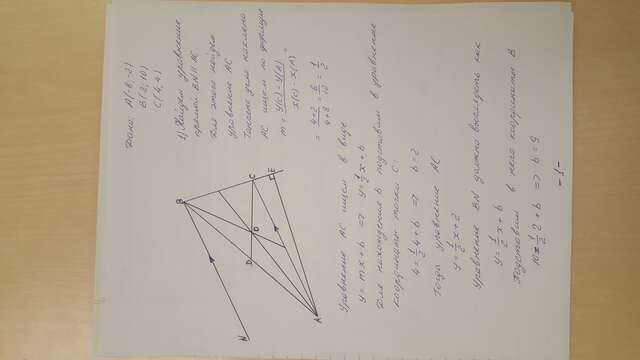 Дано: A(-8;-2)
B(2;10)
C(4;4)
1) Найдем уравнение
прямой BN || AC.
Для этого найдем
уравнение AC
Тангенс угла наклона
AC ищем по формуле
m = y(c) - y(A) / x(c) - x(A) =
= 4+2 / 4+8 = 6/12 = 1/2
B
N
D
O
C
E
A
Уравнение AC ищем в виде
y = mx + b => y = 1/2 x + b
Для нахождения b подставим в уравнение
координаты точки C:
4 = 1/2 4 + b => b = 2
Тогда уравнение AC
y = 1/2 x + 2
Уравнение BN должно выглядеть как
y = 1/2 x + b
Подставим в него координаты B
10 = 1/2 2 + b => b = 9
- 1 -